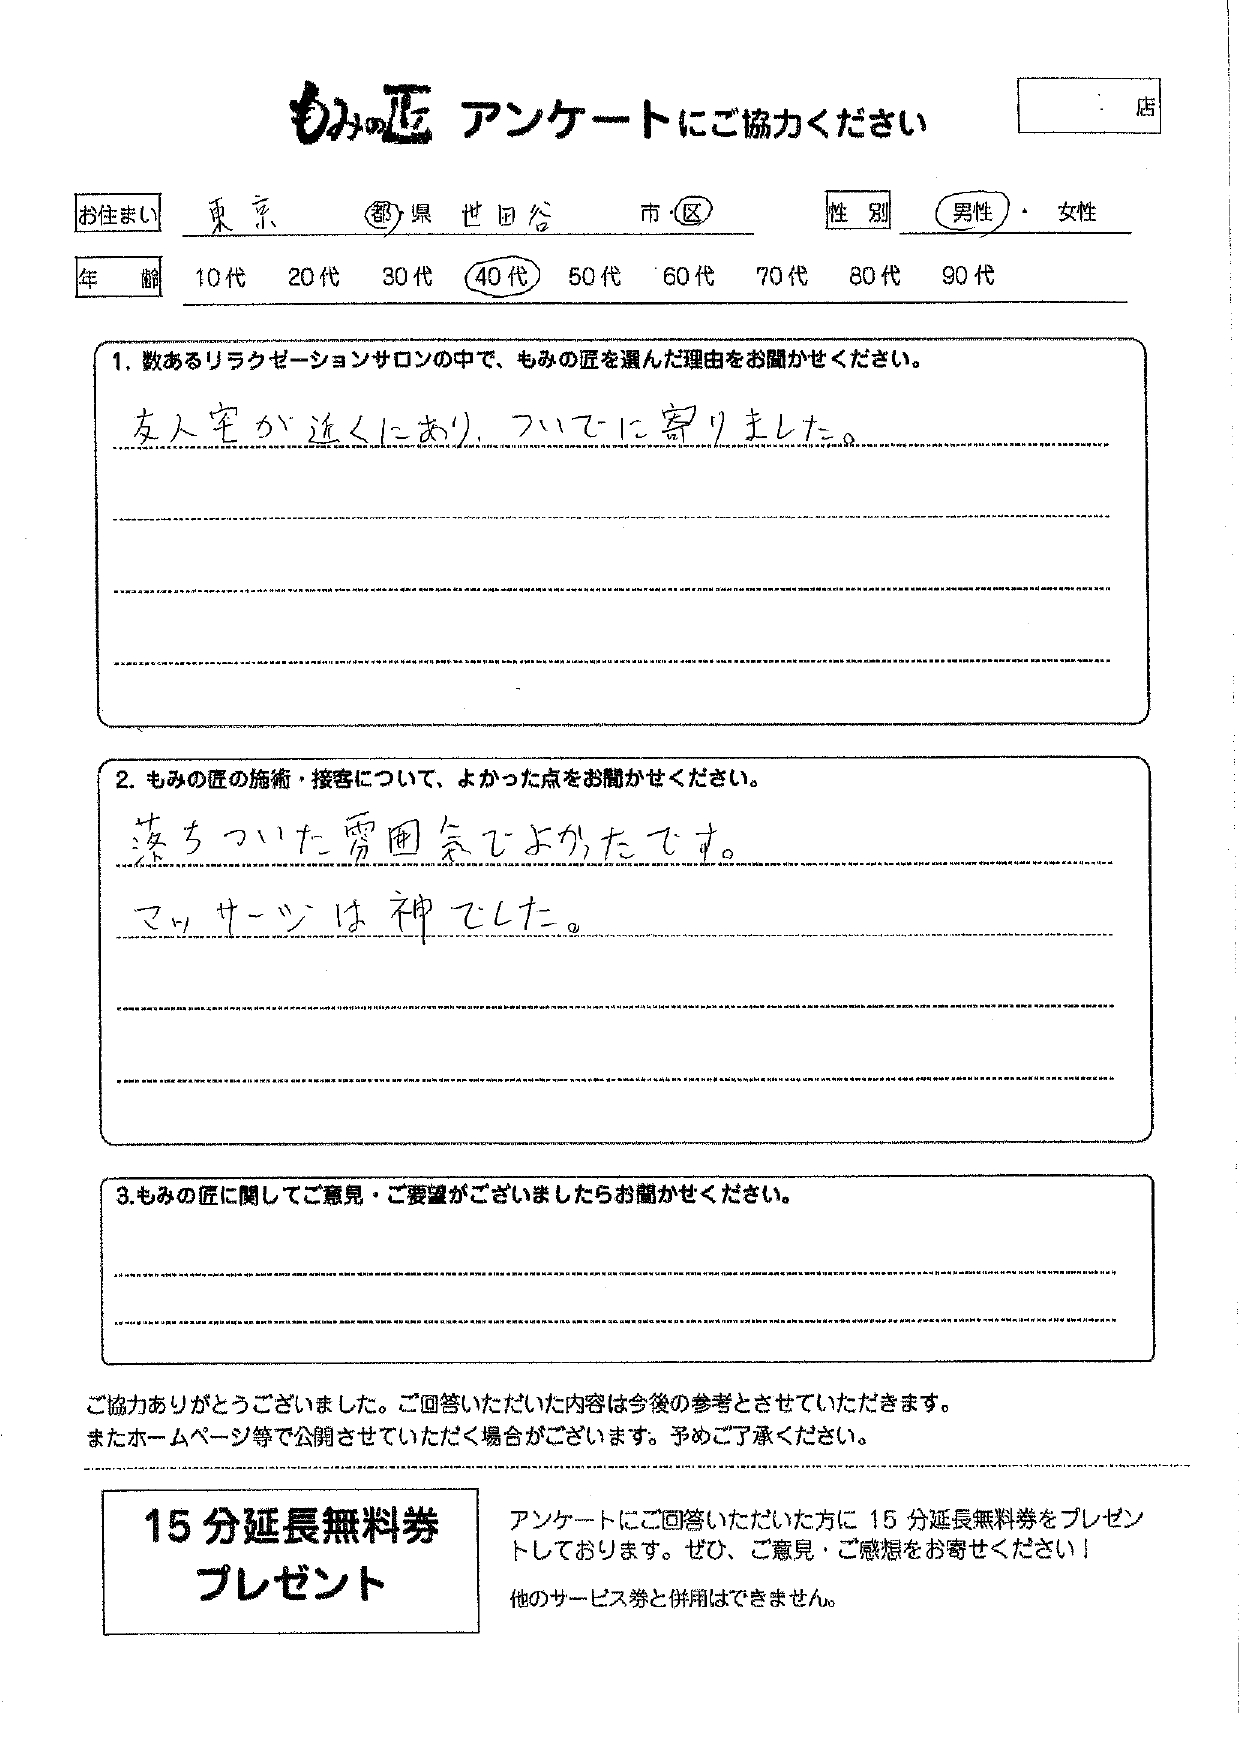 もみの匠 アンケートにご協力ください
店
お住まい 東京 都・県 世田谷 市・区 性別 男性 ・ 女性
年齢 10代 20代 30代 40代 50代 60代 70代 80代 90代
1. 数あるリラクゼーションサロンの中で、もみの匠を選んだ理由をお聞かせください。
友人宅が近くにあり、ついでに寄りました。
2. もみの匠の施術・接客について、よかった点をお聞かせください。
落ちついた雰囲気でよかったです。
マッサージは神でした。
3.もみの匠に関してご意見・ご要望がございましたらお聞かせください。
ご協力ありがとうございました。ご回答いただいた内容は今後の参考とさせていただきます。
またホームページ等で公開させていただく場合がございます。予めご了承ください。
15分延長無料券
プレゼント
アンケートにご回答いただいた方に 15 分延長無料券をプレゼン
トしております。ぜひ、ご意見・ご感想をお寄せください！
他のサービス券と併用はできません。